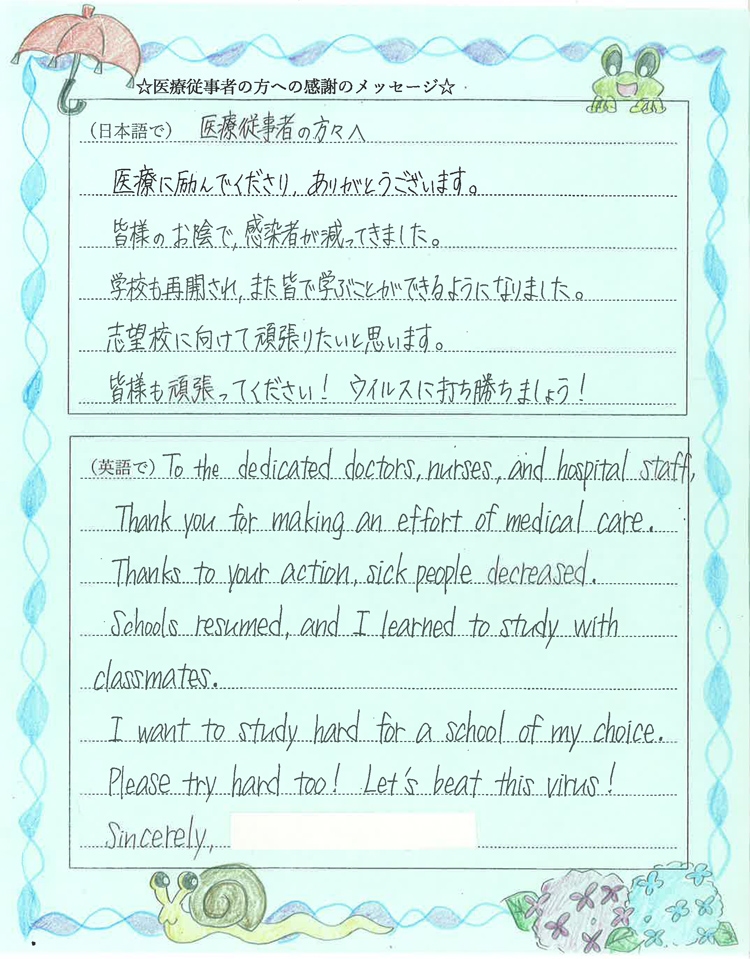 ☆医療従事者の方への感謝のメッセージ☆
（日本語で） 医療従事者の方々へ
医療に励んでくださり、ありがとうございます。
皆様のお陰で、感染者が減ってきました。
学校も再開され、また皆で学ぶことができるようになりました。
志望校に向けて頑張りたいと思います。
皆様も頑張ってください！ ウイルスに打ち勝ちましょう！
（英語で） To the dedicated doctors, nurses, and hospital staff,
Thank you for making an effort of medical care.
Thanks to your action, sick people decreased.
Schools resumed, and I learned to study with
classmates.
I want to study hard for a school of my choice.
Please try hard too! Let's beat this virus!
Sincerely,